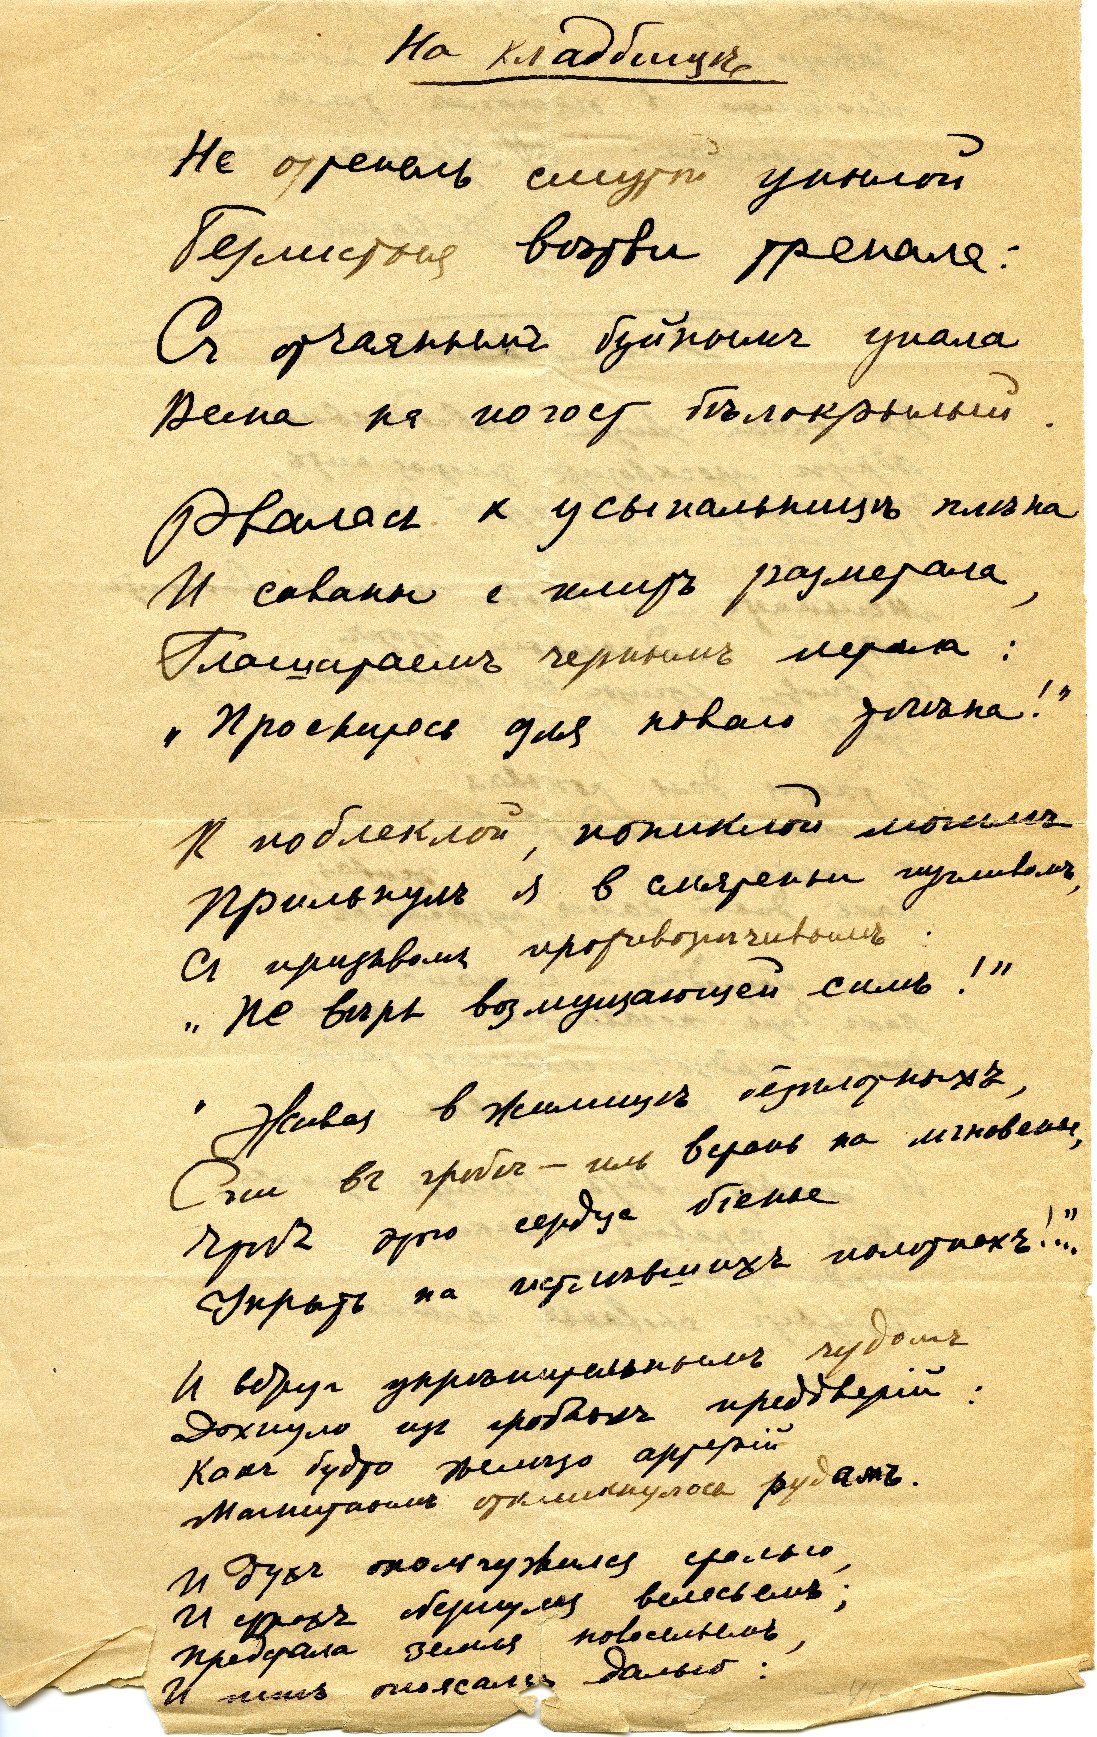 На кладбищѣ
Не оттепель смутой унылой
Безлистыя вѣтви трепала:
Съ отчаяньемъ буйнымъ упала
Весна на погост бѣлокрылый.
Рвалась к усыпальницѣ плѣна
И саваны с плитъ разметала,
Глашатаемъ чернымъ летала:
„Проснитесь для новаго тлѣна!"
К поблеклой, пониклой могилѣ
Прильнулъ я в смятеньи пугливомъ,
Съ призывомъ противорѣчивымъ:
„Не вѣрь возмущающей силѣ!"
„Живая в жилищѣ безплотныхъ,
Спи въ гробѣ – иль встань на мгновенье,
Чтобъ этого сердца біенье
Укрыть на истлѣвшихъ полотнахъ!.."
И вдругъ укрѣпительнымъ чудомъ
Дохнуло изъ гробныхъ преддверій:
Какъ будто желѣзо артерій
Магнитнымъ откликнулось рудамъ.
И духъ окольчужился сталью,
И страхъ обернулся весельемъ;
Предстала земля новосельемъ,
И опоясалась далью: